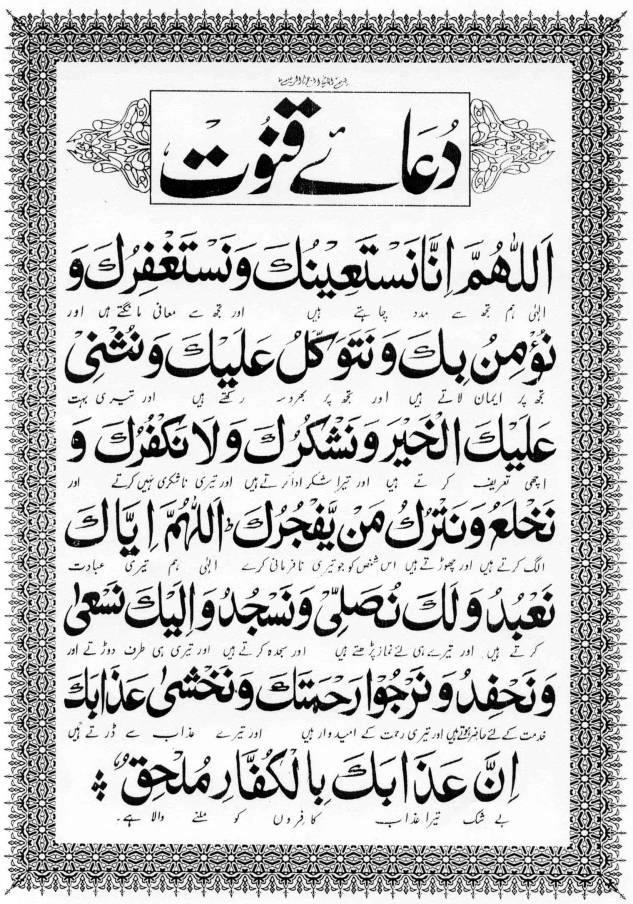 دُعَائے قنُوت
اَللّٰهُمَّ اِنَّا نَسْتَعِيْنُكَ وَنَسْتَغْفِرُكَ وَ
الہٰی ہم تجھ سے مدد چاہتے ہیں اور تجھ سے معافی مانگتے ہیں اور
نُؤْمِنُ بِكَ وَنَتَوَكَّلُ عَلَيْكَ وَنُثْنِيْ
تجھ پر ایمان لاتے ہیں اور تجھ پر بھروسہ رکھتے ہیں اور تیری بہت
عَلَيْكَ الْخَيْرَ وَنَشْكُرُكَ وَلَا نَكْفُرُكَ وَ
اچھی تعریف کرتے ہیں اور تیرا شکر ادا کرتے ہیں اور تیری ناشکری نہیں کرتے اور
نَخْلَعُ وَنَتْرُكُ مَنْ يَّفْجُرُكَ ؕ اَللّٰهُمَّ اِيَّاكَ
الگ کرتے ہیں اور چھوڑتے ہیں اس شخص کو جو تیری نافرمانی کرے الہٰی ہم تیری عبادت
نَعْبُدُ وَلَكَ نُصَلِّيْ وَنَسْجُدُ وَاِلَيْكَ نَسْعٰى
کرتے ہیں اور تیرے ہی لئے نماز پڑھتے ہیں اور سجدہ کرتے ہیں اور تیری ہی طرف دوڑتے اور
وَنَحْفِدُ وَنَرْجُوْا رَحْمَتَكَ وَنَخْشٰى عَذَابَكَ
خدمت کے لئے حاضر ہوتے ہیں اور تیری رحمت کے امیدوار ہیں اور تیرے عذاب سے ڈرتے ہیں
اِنَّ عَذَابَكَ بِالْكُفَّارِ مُلْحِقٌ
بے شک تیرا عذاب کافروں کو ملنے والا ہے۔